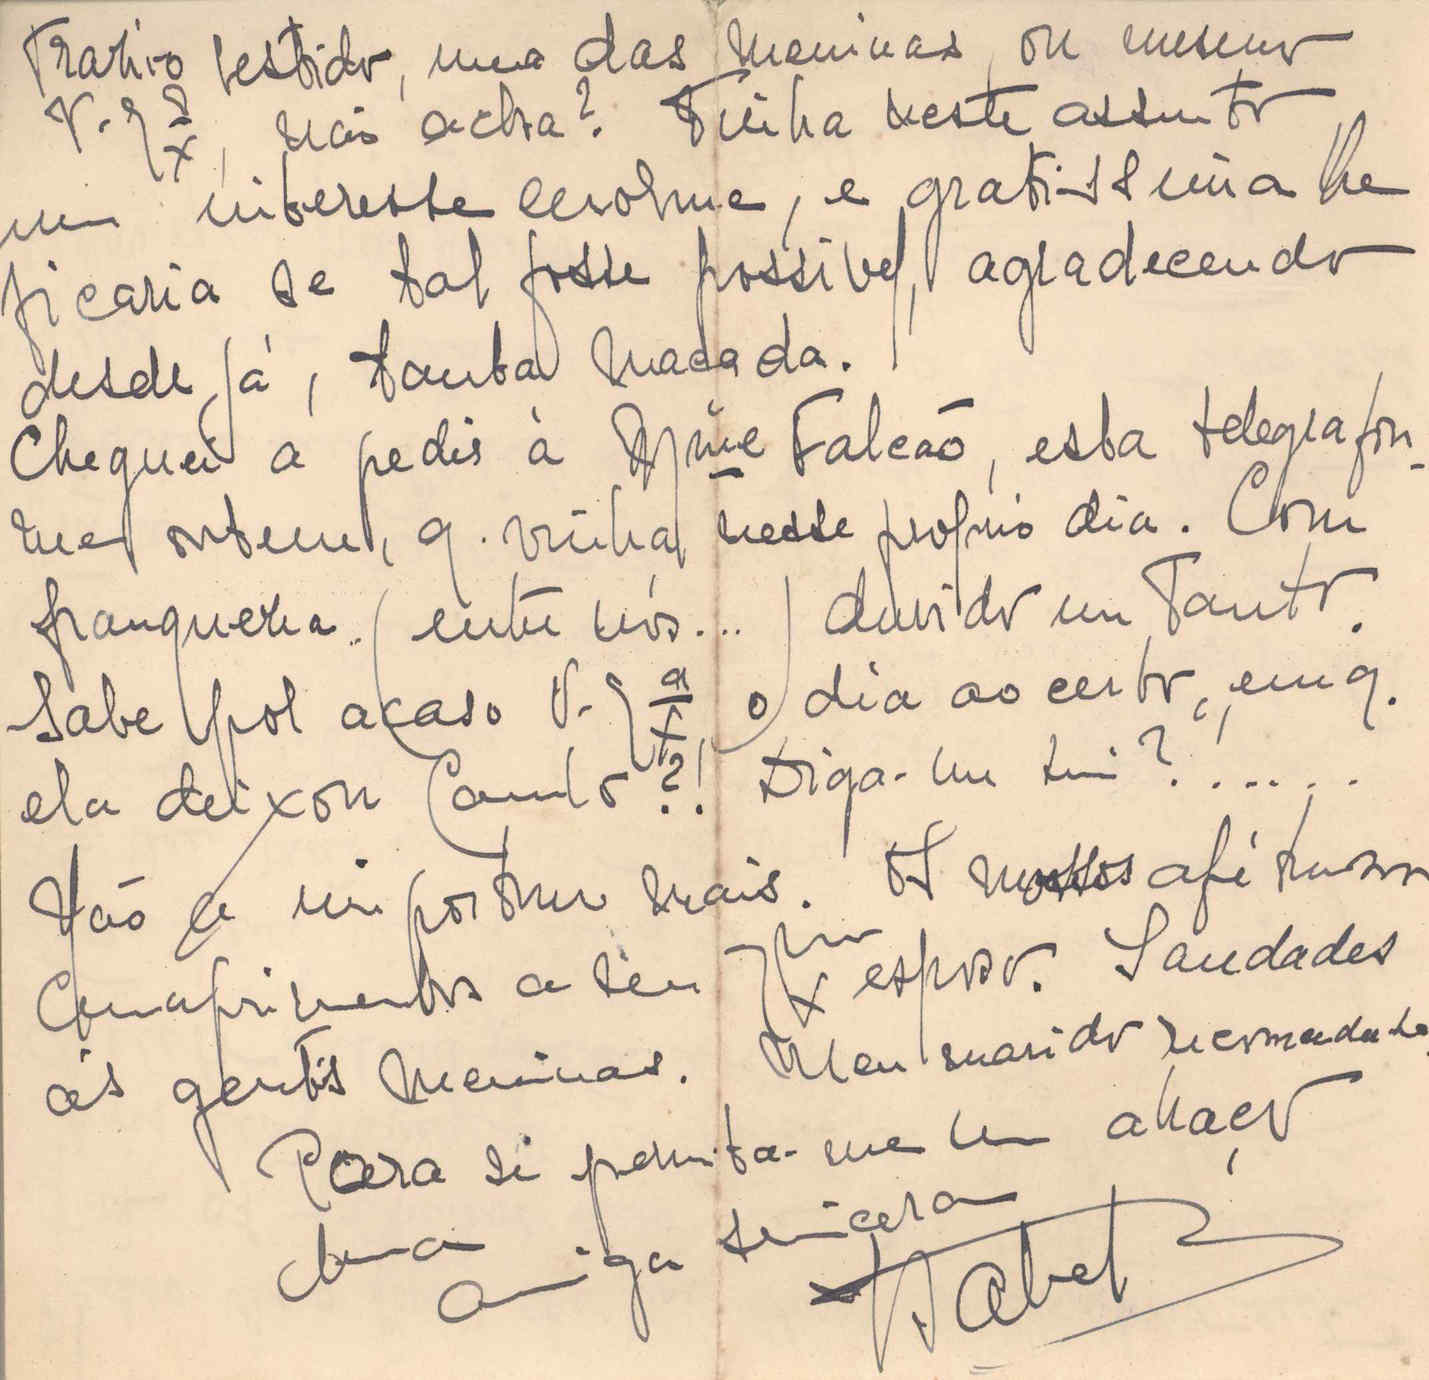 vestido, uma das meninas, ou mesmo
V. Exª, não acha? Tinha neste assunto
um interesse enorme, e gratissima lhe
ficaria se tal fosse possivel, agradecendo
desde já, tanta maçada.
Cheguei a pedir à Mme Falcão, esta telegrafou-
me ontem, q. vinha nesse proprio dia. Com
franqueza.. (entre nós...) duvido um tanto.
Sabe por acaso V. Exª, o dia ao certo, em q.
ela deixou Caminho?! Diga-me sim?......
Não a importuno mais. Os nossos
cumprimentos a seu Exmo esposo. Saudades
ás gentis meninas. Meu marido recomenda-se.
Para si permita-me um abraço
duma
amiga sincera
Isabel